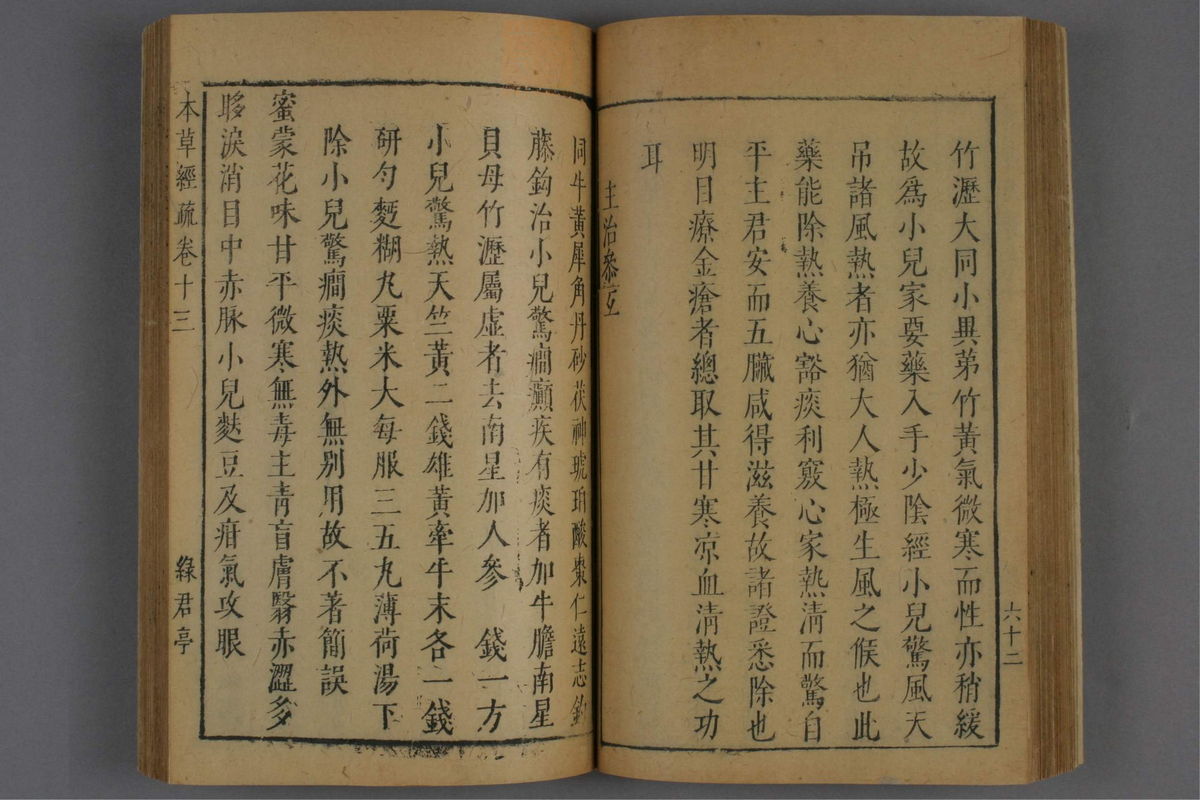 六十二
竹瀝大同小異弟竹黃氣微寒而性亦稍緩
故爲小兒家要藥入手少陰經小兒驚風天
吊諸風熱者亦猶大人熱極生風之候也此
藥能除熱養心豁痰利竅心家熱淸而驚自
平主君安而五臟咸得滋養故諸證悉除也
明目療金瘡者總取其甘寒凉血淸熱之功
耳
主治參互
同牛黃犀角丹砂茯神琥珀酸棗仁遠志鈎
藤鈎治小兒驚癇癲疾有痰者加牛膽南星
貝母竹瀝屬虛者去南星加人參 錢一方
小兒驚熱天竺黃二錢雄黃牽牛末各一錢
研勻麪糊丸粟米大每服三五丸薄荷湯下
除小兒驚癇痰熱外無別用故不著簡誤
蜜蒙花味甘平微寒無毒主靑盲膚翳赤澀多
眵淚消目中赤脉小兒麩豆及疳氣攻眼
本草經疏卷十三
綠君亭